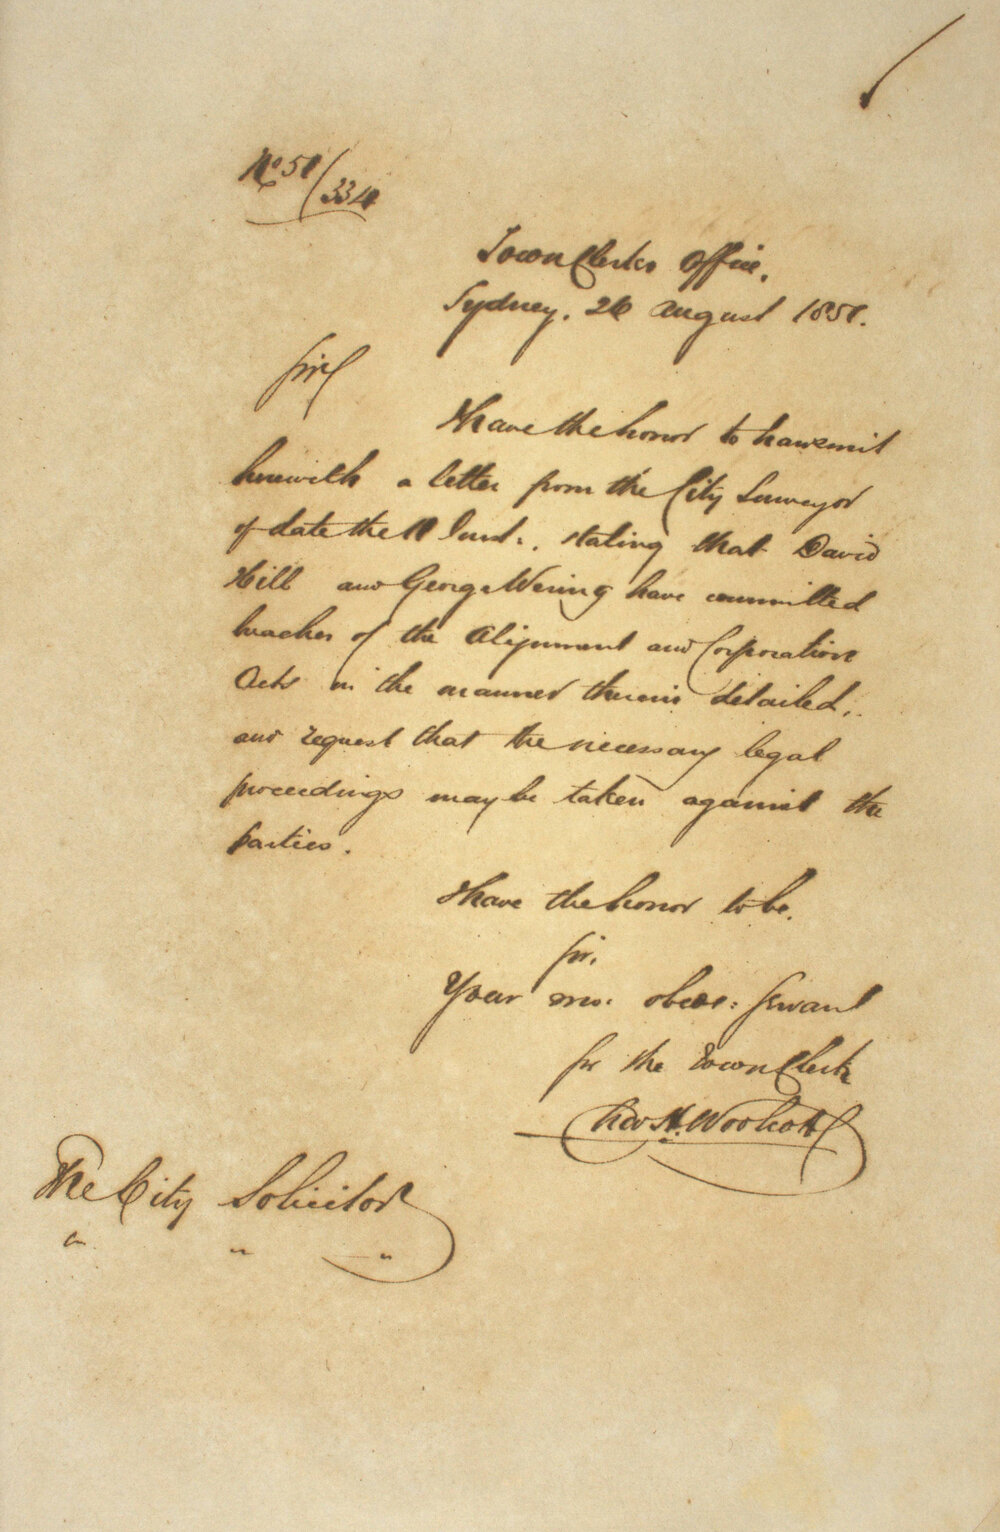 No 51/334
Town Clerks Office,
Sydney. 26 August 1851.
Sir
I have the honor to transmit
herewith a letter from the City Surveyor
of date the 11 Inst:. stating that David
Hill and George Wering have committed
breaches of the Alignment and Corporation
Acts in the manner therein detailed,
and request that the necessary legal
proceedings may be taken against the
parties.
I have the honor to be.
Sir.
Your mo: obed: Servant
for the Town Clerk
Chas H. Woolcott
The City Solicitor
" " "